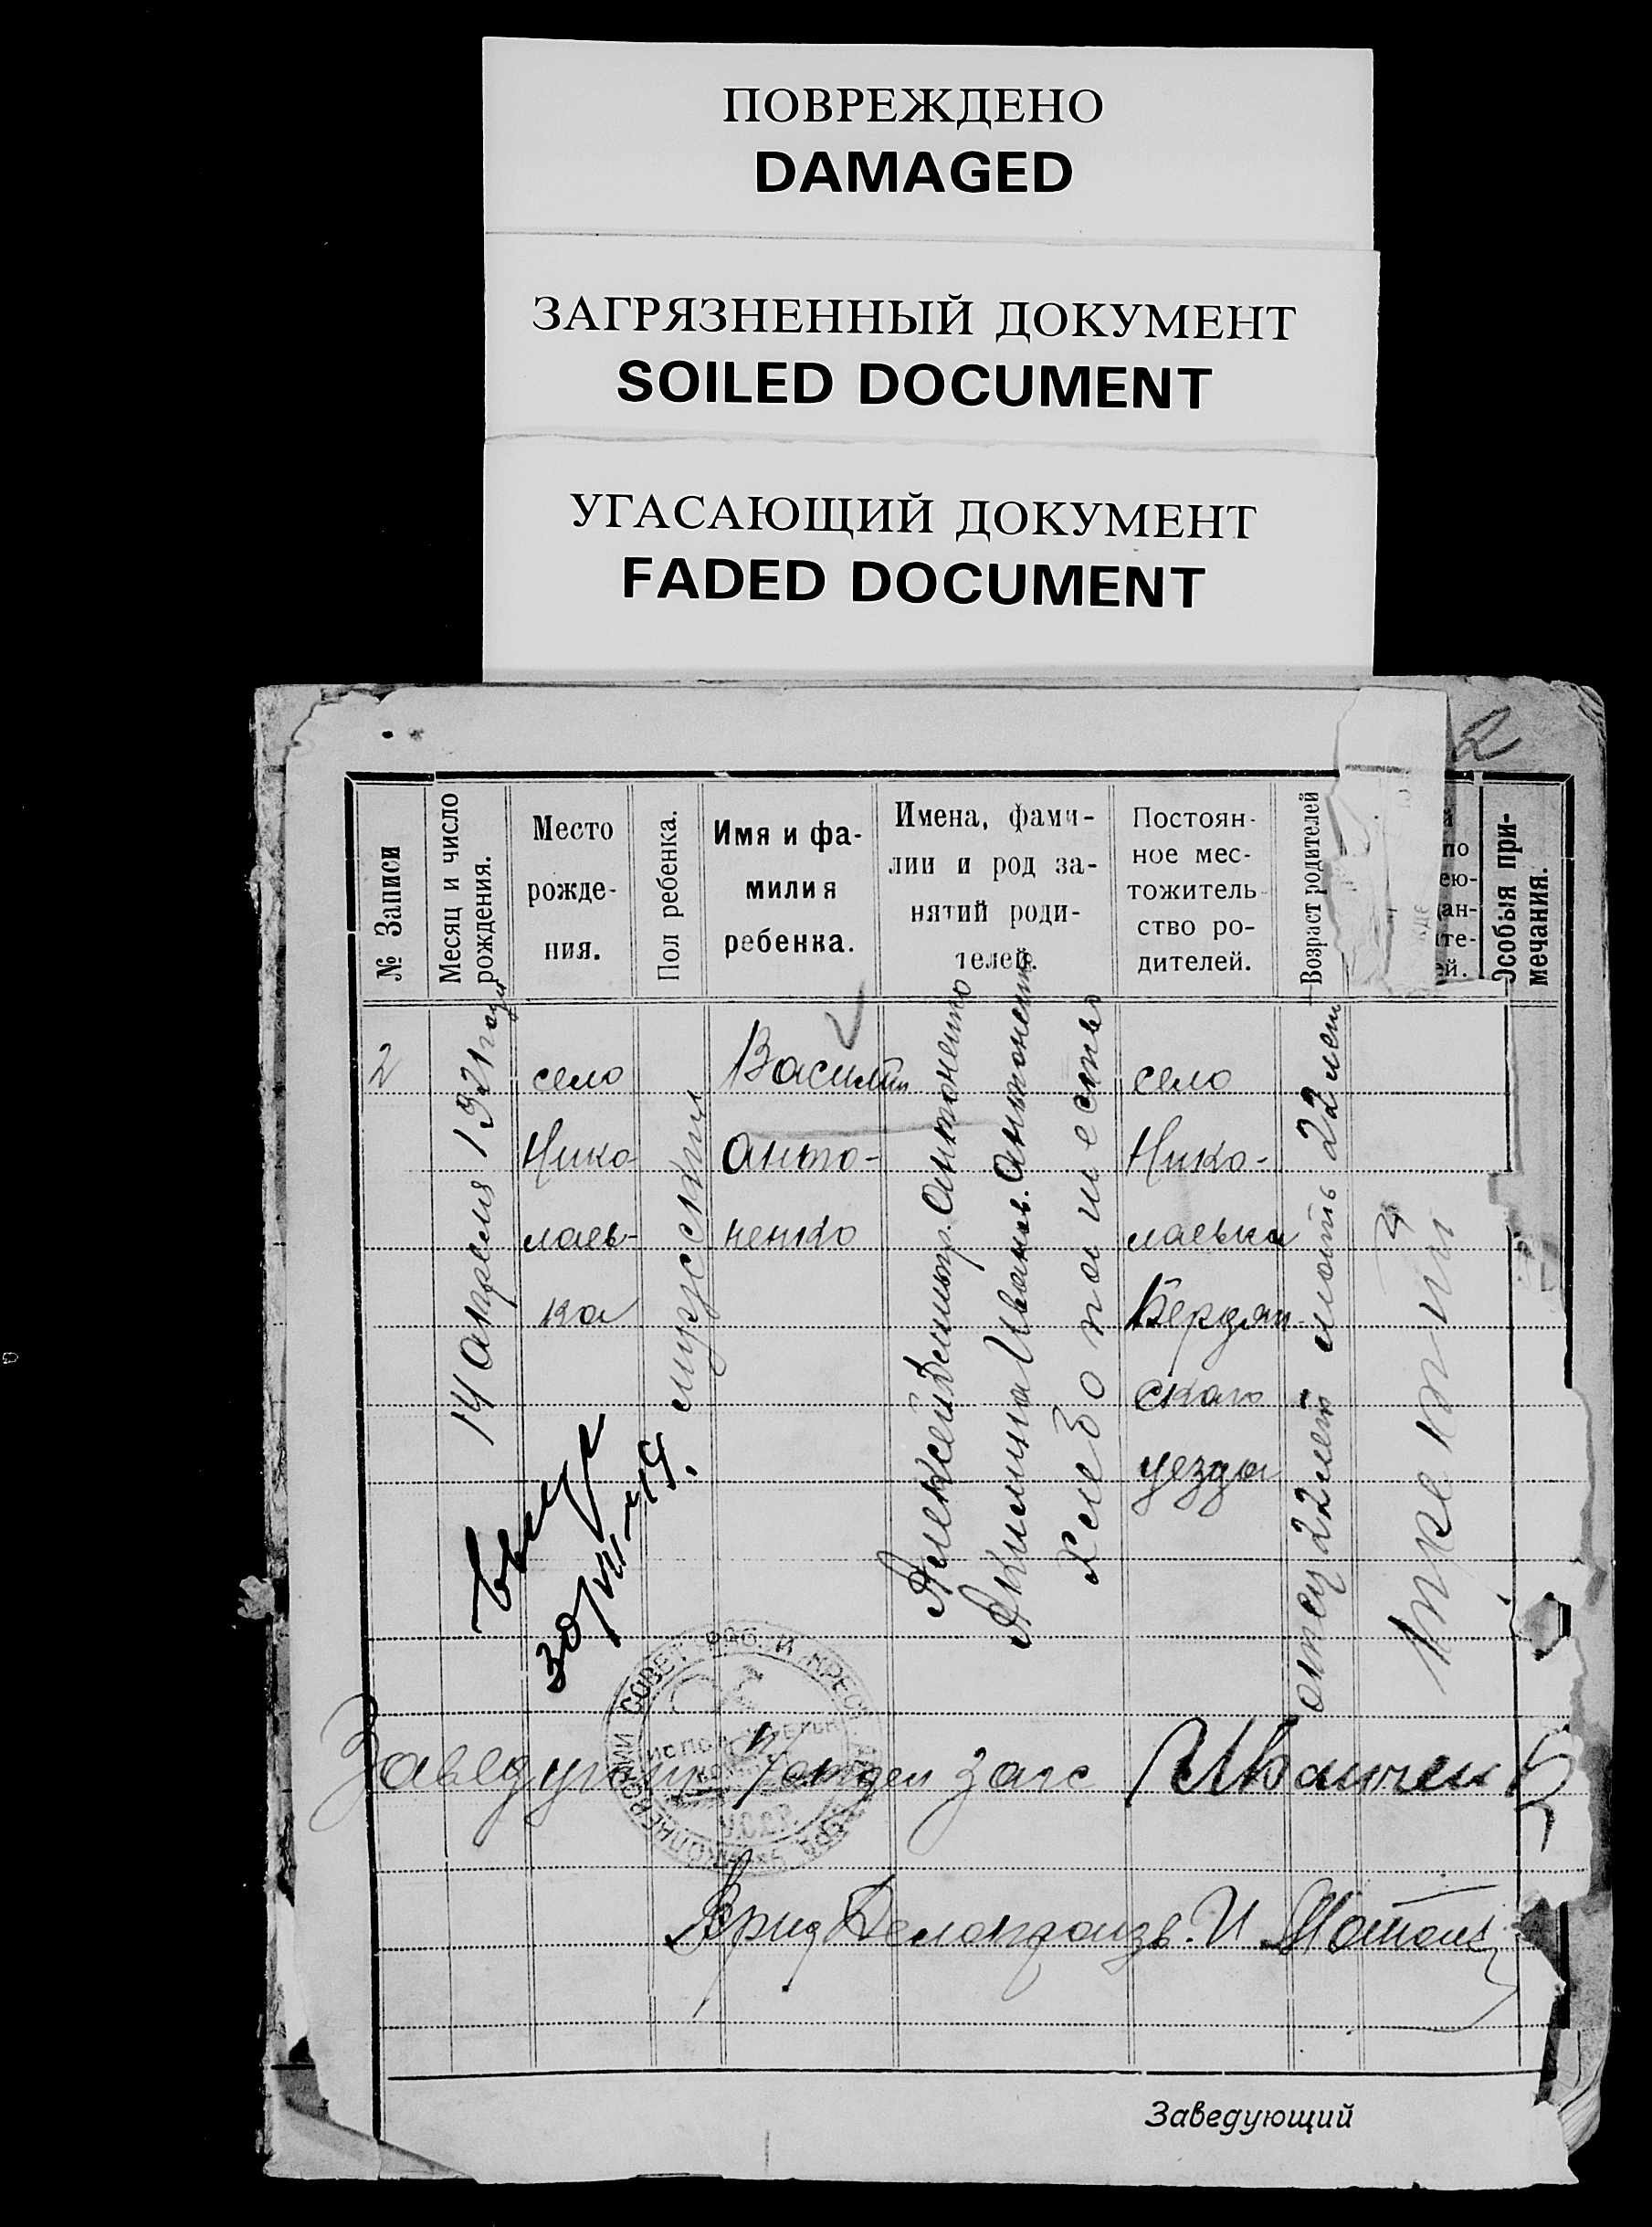 ПОВРЕЖДЕНО
DAMAGED
ЗАГРЯЗНЕННЫЙ ДОКУМЕНТ
SOILED DOCUMENT
УГАСАЮЩИЙ ДОКУМЕНТ
FADED DOCUMENT
2
№ Записи
Месяц и число
рождения.
Место
рожде-
ния.
Пол ребенка.
Имя и фа-
милия
ребенка.
Имена, фами-
лии и род за-
нятий роди-
телей.
Постоян-
ное мес-
тожитель-
ство ро-
дителей.
Возраст родителей
Особыя при-
мечания.
2
14 апреля 1921 года
село
Нико-
лаев-
ка
мужский
Василий
Анто-
ненко
Алексей Димитр. Антоненко
Акилина Иванов. Антоненко
Хлебопашество
село
Нико-
лаевка
Бердян-
скаго
уезда
отец 22 лет мать 22 лет
Третий
30/VII-49.
СОВЕТ РАБ. И КРЕСТ.
У.С.С.Р.
Заведующий п/отдел загс Иванченко
Врид Делопроизв. И
Заведующий